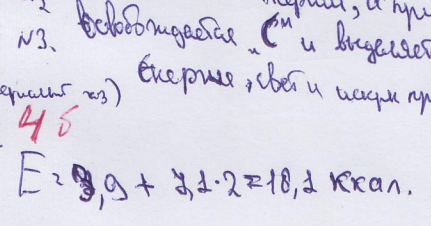 N3. Освобождается "С" и выделяет
Енергия, свет и искры пр
4 б
E = 3,9 + 7,1·2 = 18,1 ккал.